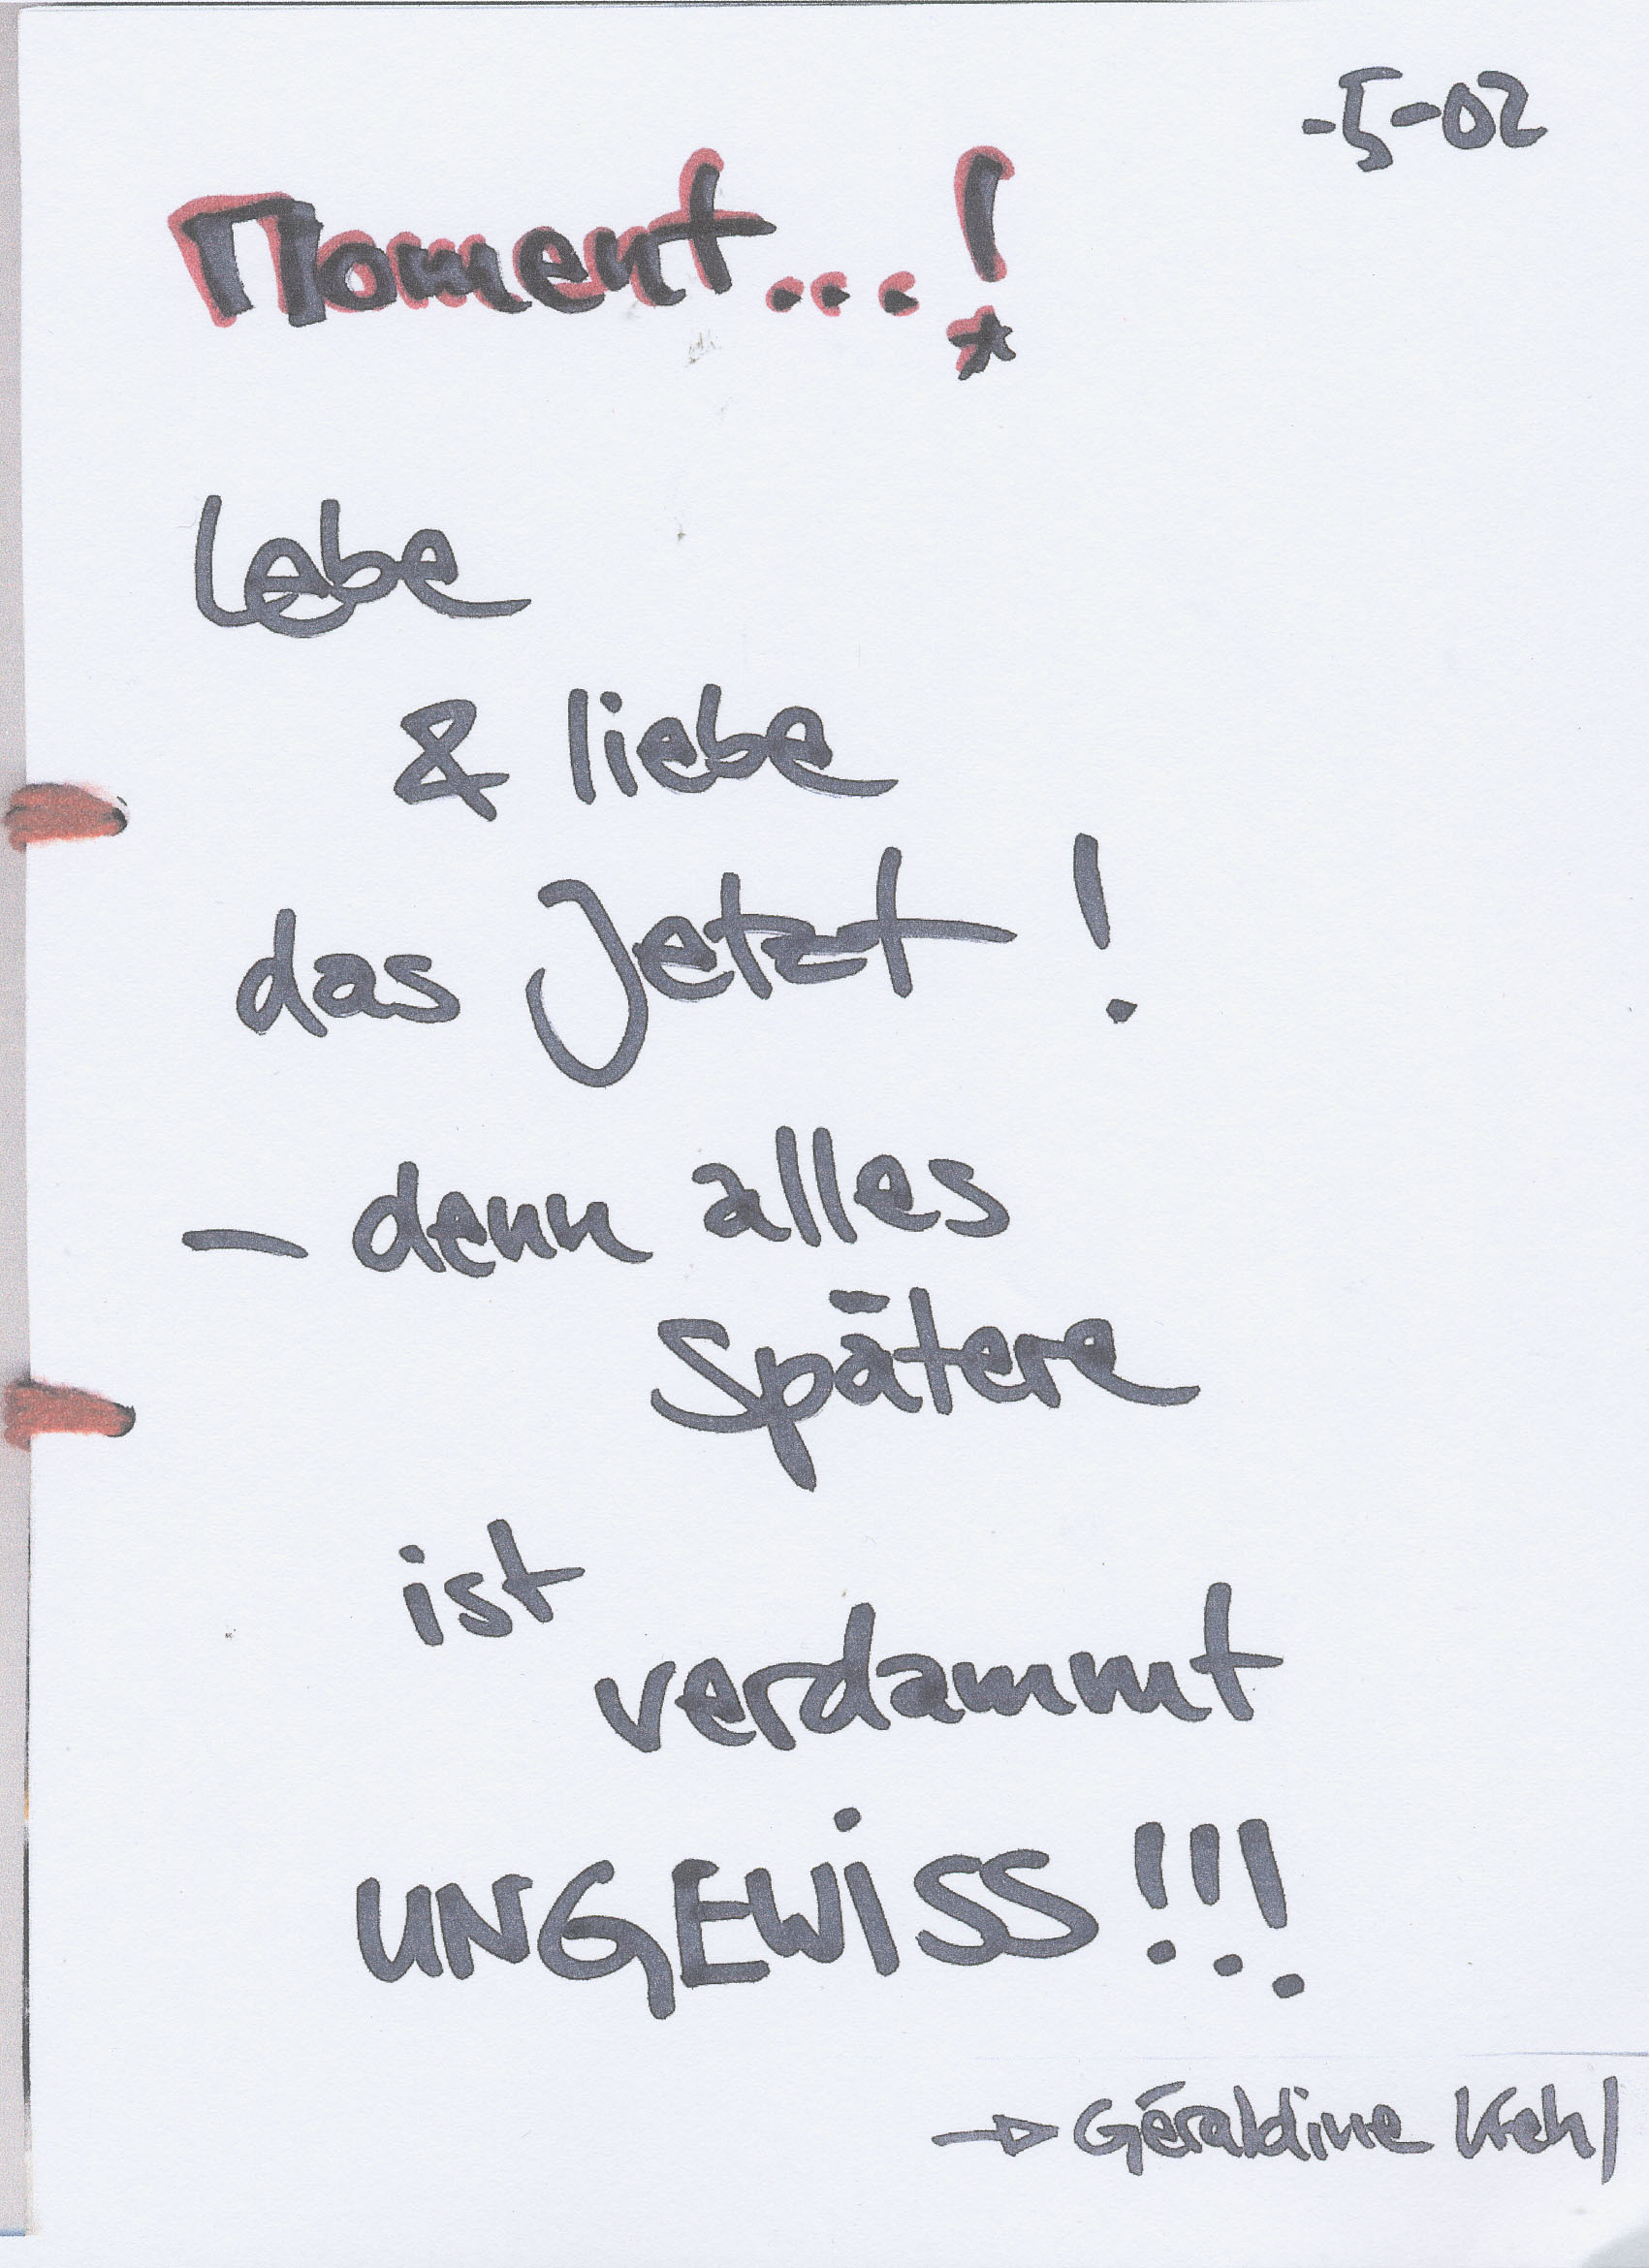 -5-02
Moment...!
Lebe
& liebe
das Jetzt!
– denn alles
Spätere
ist
verdammt
UNGEWiSS!!!
→ Géraldine